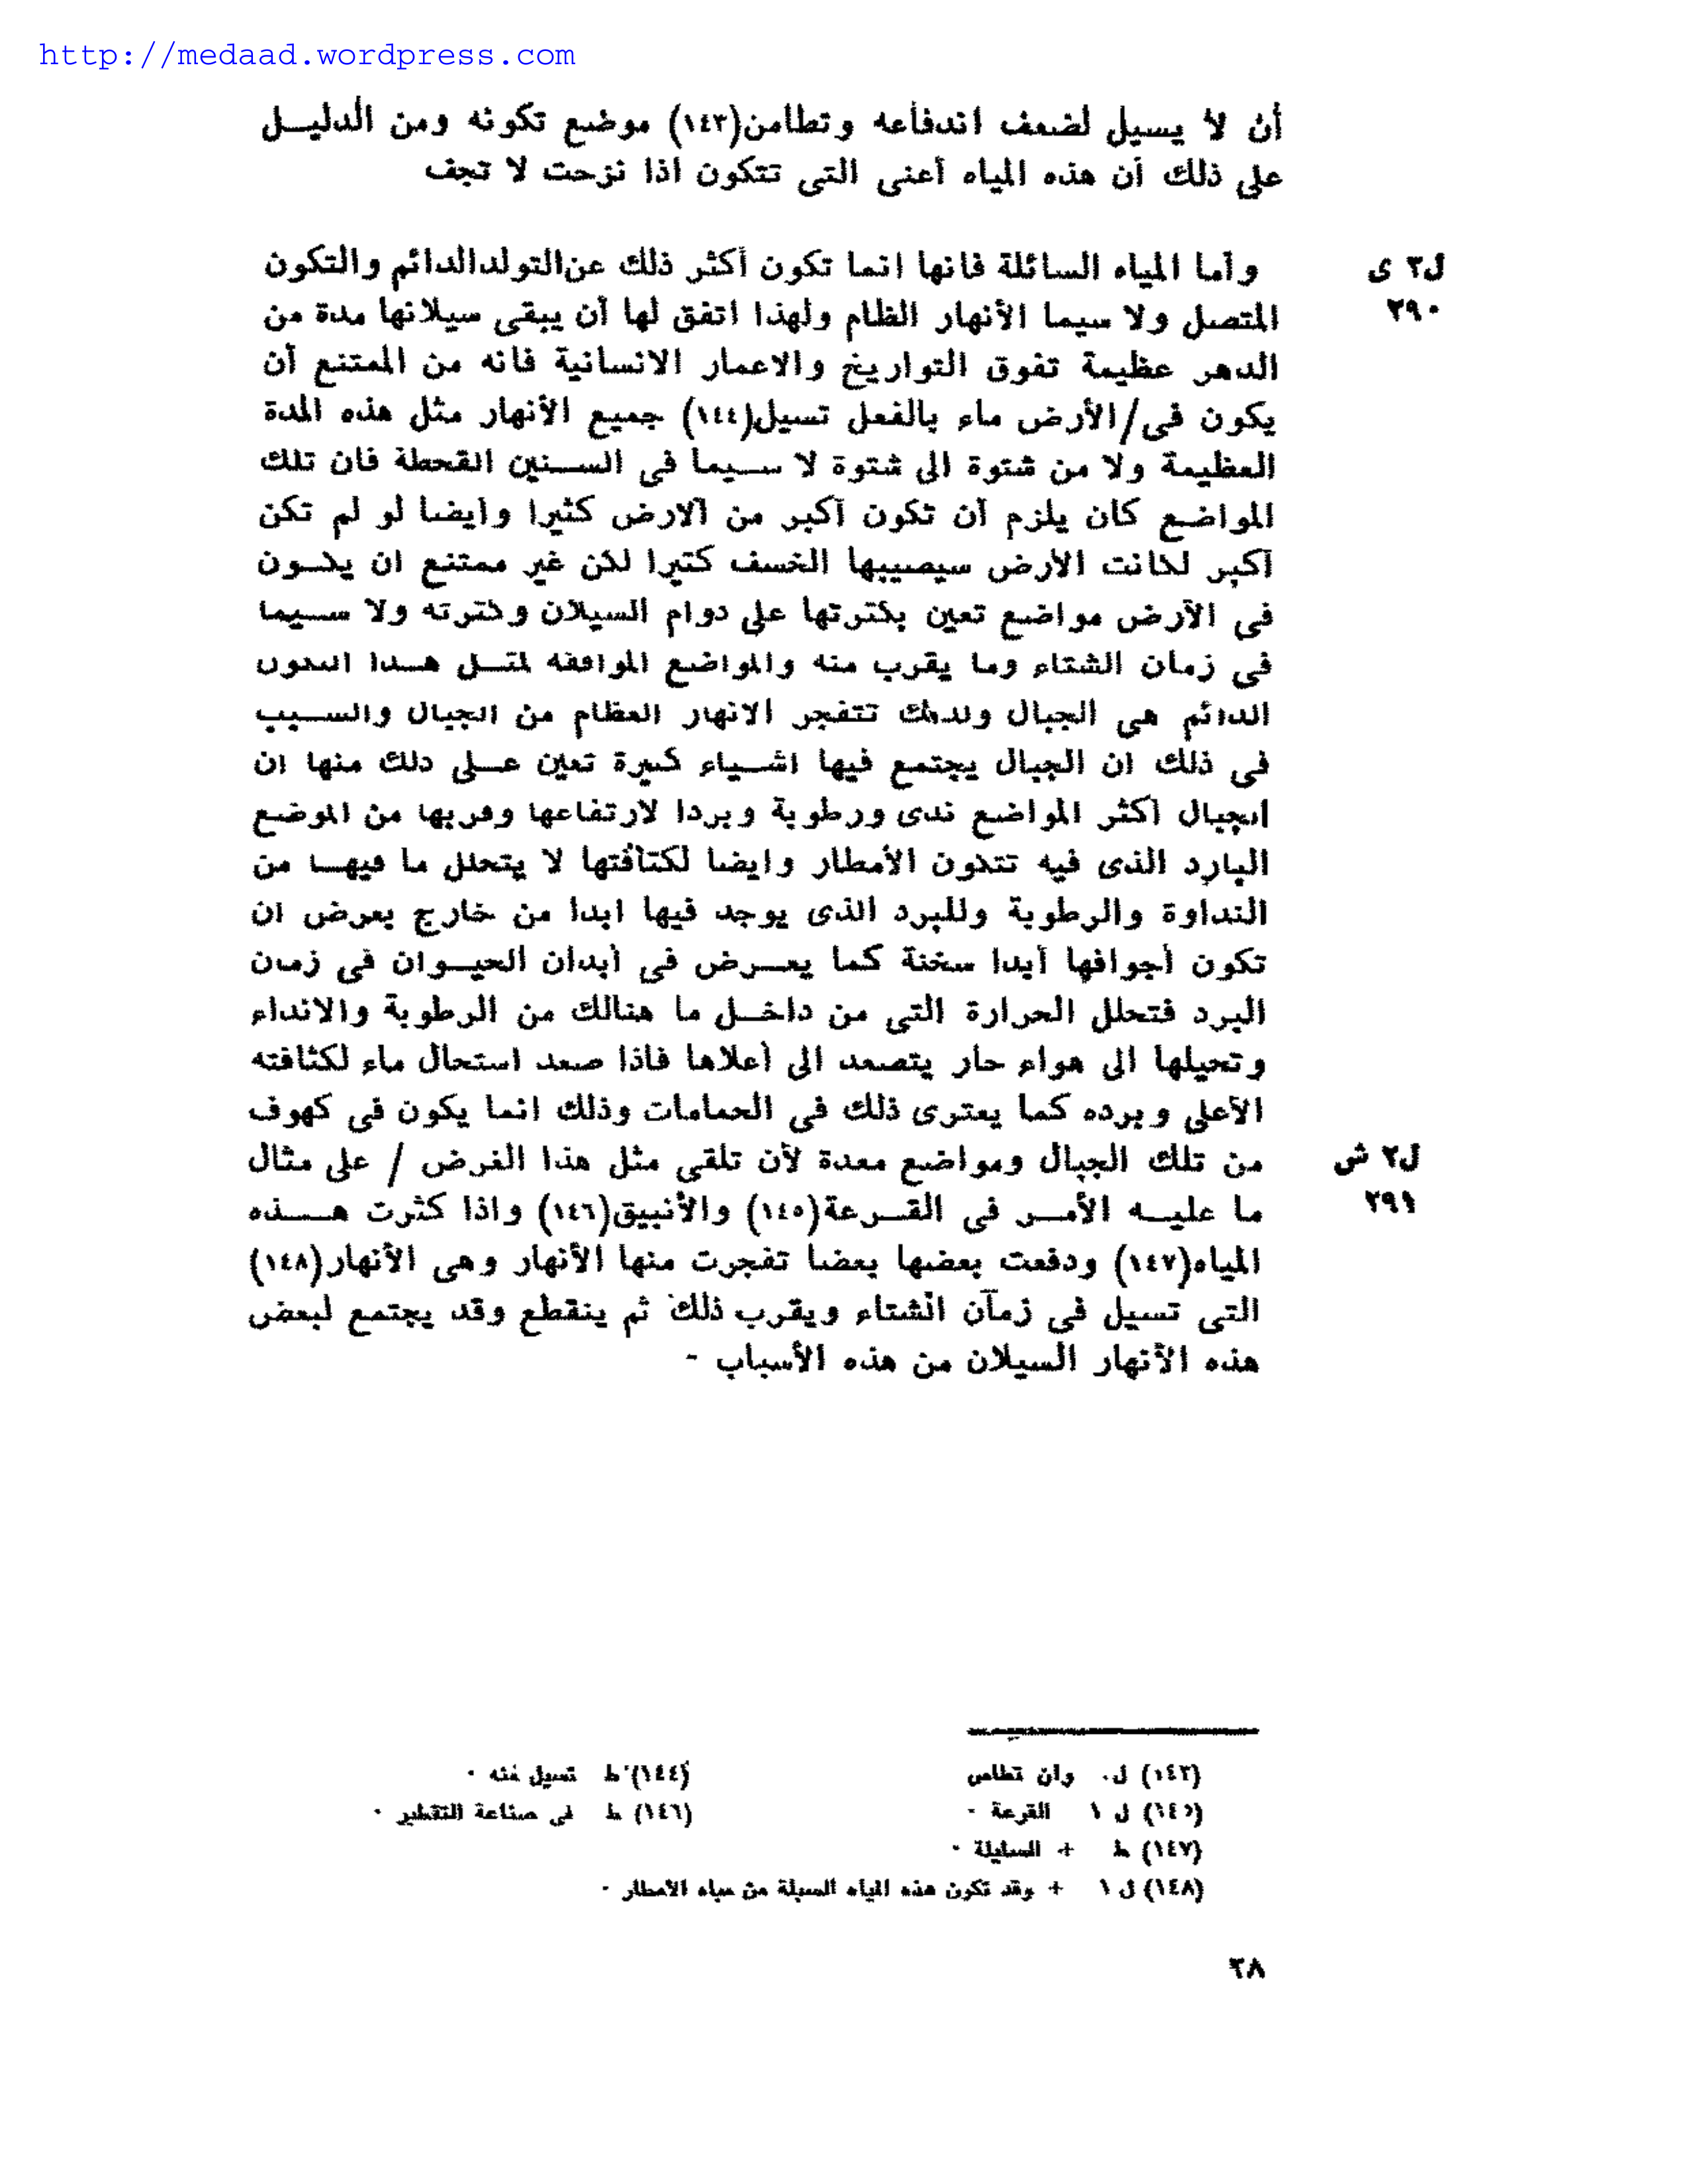 http://medaad.wordpress.com
أن لا يسيل لضعف اندفاعه وتطامن(١٤٣) موضع تكونه ومن الدليل
على ذلك أن هذه المياه أعنى التى تتكون اذا نزحت لا تجف
ل٢ ى
٢٩٠
وأما المياه السائلة فانها انما تكون أكثر ذلك عن التولد الدائم والتكون
المتصل ولا سيما الأنهار الظام ولهذا اتفق لها أن يبقى سيلانها مدة من
الدهر عظيمة تفوق التواريخ والاعمار الانسانية فانه من الممتنع أن
يكون فى/الأرض ماء بالفعل تسيل(١٤٤) جميع الأنهار مثل هذه المدة
العظيمة ولا من شتوة الى شتوة لا سيما فى السنين القحطة فان تلك
المواضع كان يلزم أن تكون أكبر من الارض كثيرا وأيضا لو لم تكن
أكبر لكانت الأرض سيصيبها الخسف كثيرا لكن غير ممتنع ان يكون
فى الأرض مواضع تعين بكثرتها على دوام السيلان وكثرته ولا سيما
فى زمان الشتاء وما يقرب منه والمواضع الموافقه لمثل هذا التكون
الدائم هى الجبال ولذلك تتفجر الانهار العظام من الجبال والسبب
فى ذلك ان الجبال يجتمع فيها اشياء كبيرة تعين على ذلك منها ان
الجبال أكثر المواضع ندى ورطوبة وبردا لارتفاعها وقربها من الموضع
البارد الذى فيه تتكون الأمطار وايضا لكثافتها لا يتحلل ما فيها من
النداوة والرطوبة وللبرد الذى يوجد فيها ابدا من خارج يعرض ان
تكون أجوافها أبدا سخنة كما يعرض فى أبدان الحيوان فى زمان
البرد فتحلل الحرارة التى من داخل ما هنالك من الرطوبة والانداء
وتحيلها الى هواء حار يتصعد الى أعلاها فاذا صعد استحال ماء لكثافته
الأعلى وبرده كما يعترى ذلك فى الحمامات وذلك انما يكون فى كهوف
من تلك الجبال ومواضع معدة لأن تلقى مثل هذا الغرض / على مثال
ل٢ ش
٢٩١
ما عليه الأمر فى القرعة(١٤٥) والأنبيق(١٤٦) واذا كثرت هذه
المياه(١٤٧) ودفعت بعضها بعضا تفجرت منها الأنهار وهى الأنهار(١٤٨)
التى تسيل فى زمان الشتاء ويقرب ذلك ثم ينقطع وقد يجتمع لبعض
هذه الأنهار السيلان من هذه الأسباب -
(١٤٣) ل. وان تطامن
(١٤٤) ط تسيل منه .
(١٤٥) ل ١ القرعة .
(١٤٦) ط فى صناعة التقطير .
(١٤٧) ط + السايلة .
(١٤٨) ل ١ + وقد تكون هذه المياه السيلة من مياه الامطار .
٢٨